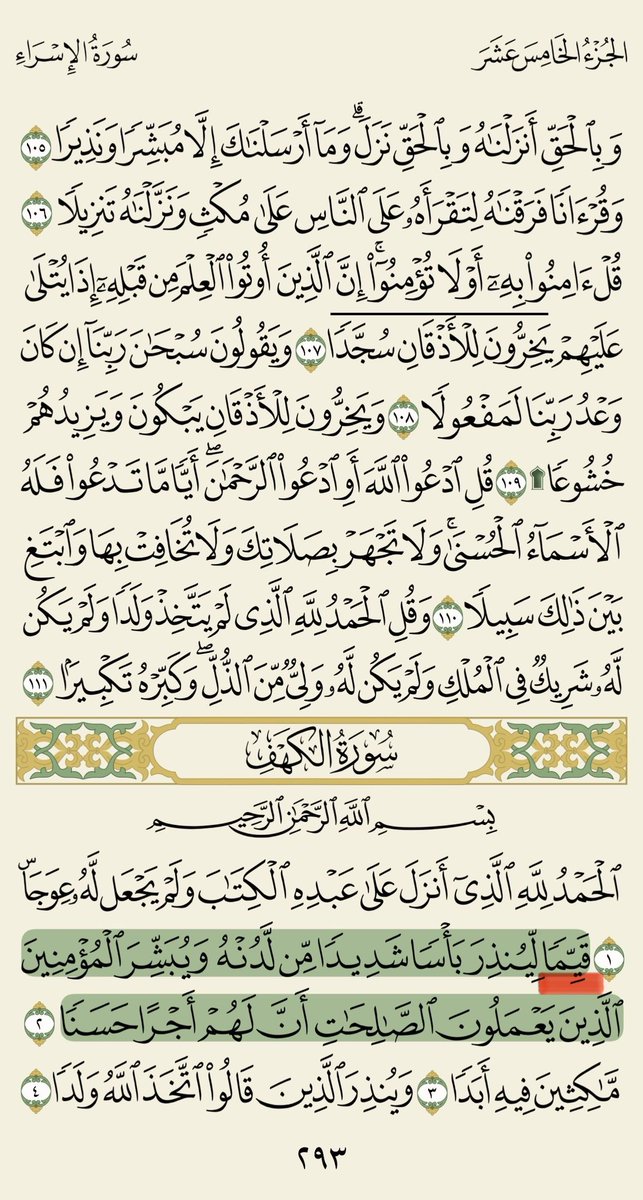 الجُزْءُ الخَامِسَ عَشَرَ
سُورَةُ الإِسْرَاءِ
وَبِٱلْحَقِّ أَنزَلْنَٰهُ وَبِٱلْحَقِّ نَزَلَ ۗ وَمَآ أَرْسَلْنَٰكَ إِلَّا مُبَشِّرًا وَنَذِيرًا ١٠٥
وَقُرْءَانًا فَرَقْنَٰهُ لِتَقْرَأَهُۥ عَلَى ٱلنَّاسِ عَلَىٰ مُكْثٍ وَنَزَّلْنَٰهُ تَنزِيلًا ١٠٦
قُلْ ءَامِنُوا۟ بِهِۦٓ أَوْ لَا تُؤْمِنُوٓا۟ ۚ إِنَّ ٱلَّذِينَ أُوتُوا۟ ٱلْعِلْمَ مِن قَبْلِهِۦٓ إِذَا يُتْلَىٰ
عَلَيْهِمْ يَخِرُّونَ لِلْأَذْقَانِ سُجَّدًا ١٠٧ وَيَقُولُونَ سُبْحَٰنَ رَبِّنَآ إِن كَانَ
وَعْدُ رَبِّنَا لَمَفْعُولًا ١٠٨ وَيَخِرُّونَ لِلْأَذْقَانِ يَبْكُونَ وَيَزِيدُهُمْ
خُشُوعًا ۩ ١٠٩ قُلِ ٱدْعُوا۟ ٱللَّهَ أَوِ ٱدْعُوا۟ ٱلرَّحْمَٰنَ ۖ أَيًّا مَّا تَدْعُوا۟ فَلَهُ
ٱلْأَسْمَآءُ ٱلْحُسْنَىٰ ۚ وَلَا تَجْهَرْ بِصَلَاتِكَ وَلَا تُخَافِتْ بِهَا وَٱبْتَغِ
بَيْنَ ذَٰلِكَ سَبِيلًا ١١٠ وَقُلِ ٱلْحَمْدُ لِلَّهِ ٱلَّذِى لَمْ يَتَّخِذْ وَلَدًا وَلَمْ يَكُن
لَّهُۥ شَرِيكٌ فِى ٱلْمُلْكِ وَلَمْ يَكُن لَّهُۥ وَلِىٌّ مِّنَ ٱلذُّلِّ ۖ وَكَبِّرْهُ تَكْبِيرًۢا ١١١
سُورَةُ الكَهْفِ
بِسْمِ ٱللَّهِ ٱلرَّحْمَٰنِ ٱلرَّحِيمِ
ٱلْحَمْدُ لِلَّهِ ٱلَّذِىٓ أَنزَلَ عَلَىٰ عَبْدِهِ ٱلْكِتَٰبَ وَلَمْ يَجْعَل لَّهُۥ عِوَجَا ۜ
١ قَيِّمًا لِّيُنذِرَ بَأْسًا شَدِيدًا مِّن لَّدُنْهُ وَيُبَشِّرَ ٱلْمُؤْمِنِينَ
ٱلَّذِينَ يَعْمَلُونَ ٱلصَّٰلِحَٰتِ أَنَّ لَهُمْ أَجْرًا حَسَنًا ٢
مَّٰكِثِينَ فِيهِ أَبَدًا ٣ وَيُنذِرَ ٱلَّذِينَ قَالُوا۟ ٱتَّخَذَ ٱللَّهُ وَلَدًا ٤
٢٩٣